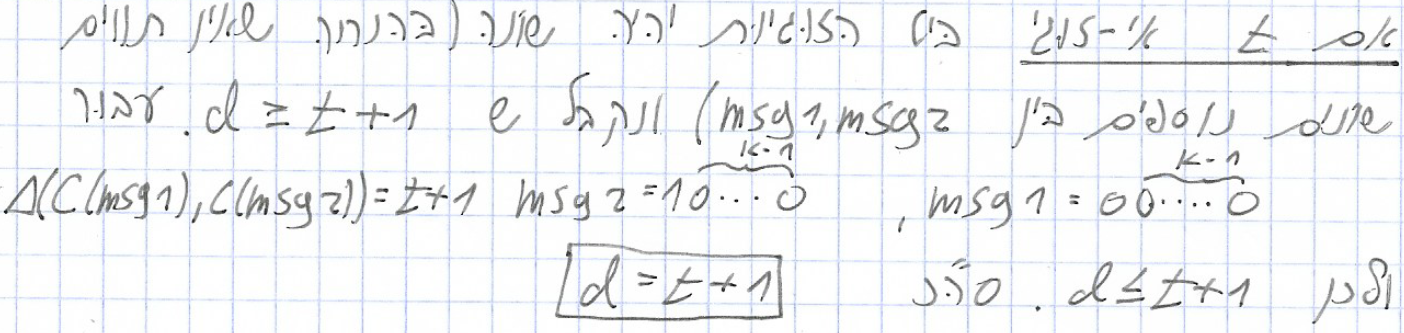 אם t אי-זוגי ביט הזוגיות יהיה שונה (בהנחה שאין תווים
שונים נוספים בין msg1,msg2) ונקבל ש d ≥ t+1. עבור
msg1 = 00....0 (k-1), msg2 = 10...0 (k-1) Δ(C(msg1),C(msg2))=t+1
ולכן d≤t+1. סה"כ d=t+1